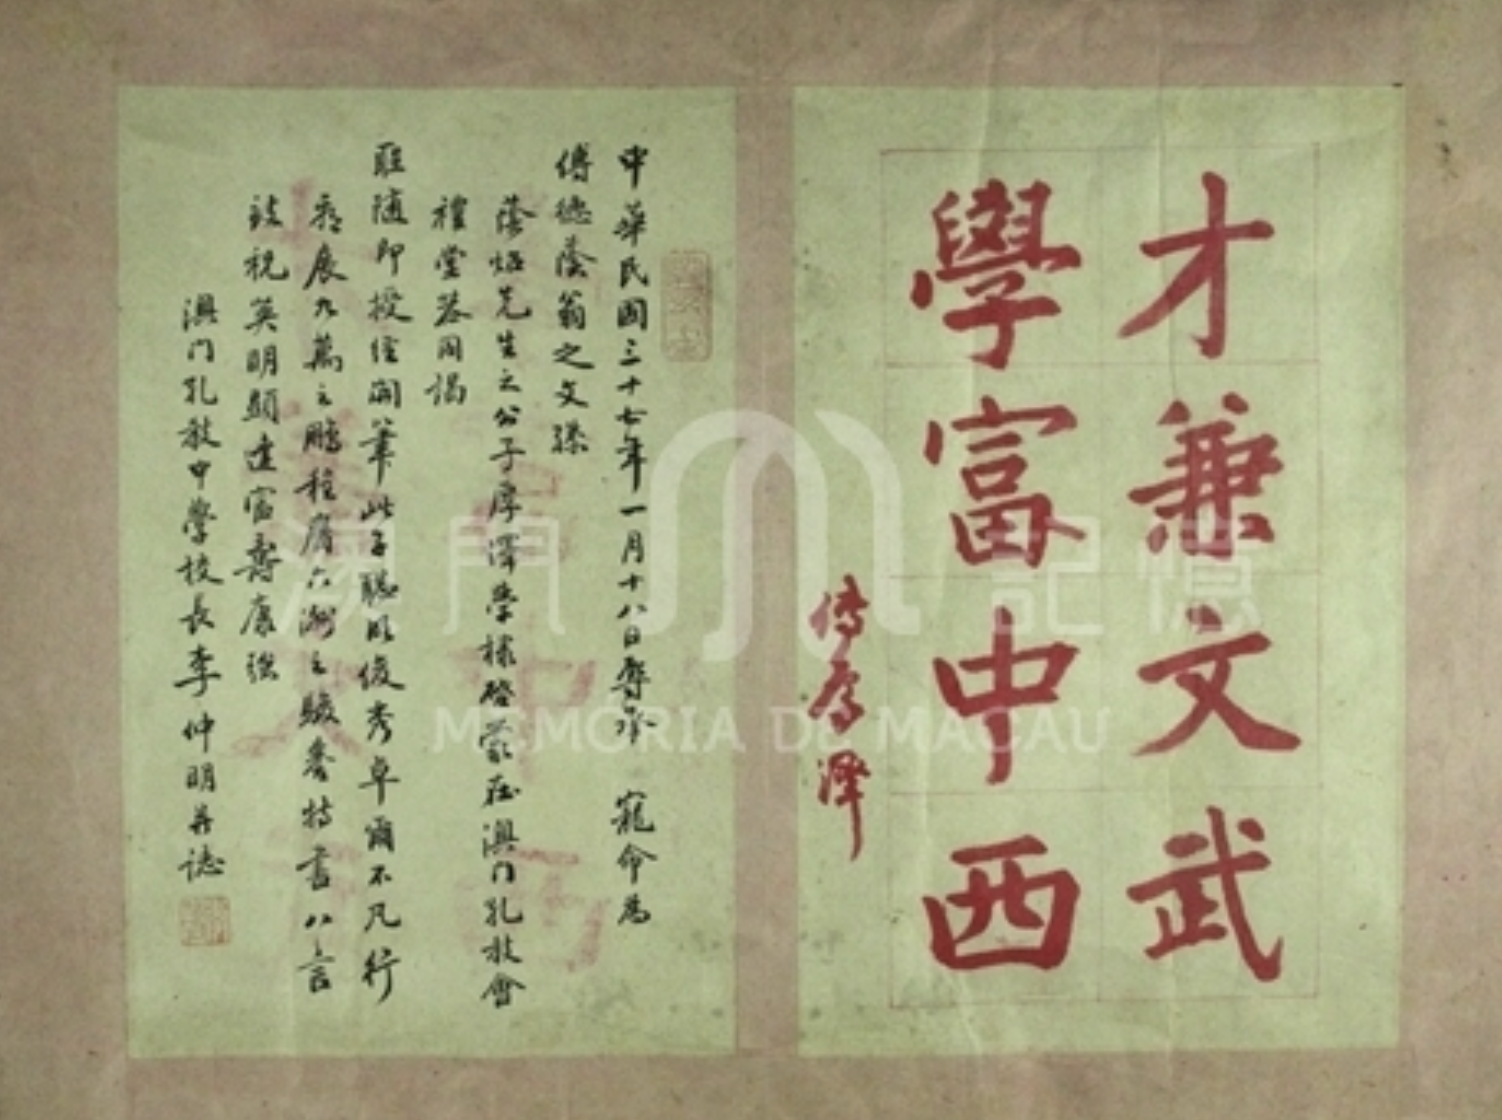 才兼文武
學富中西
傅厚澤
中華民國三十七年一月十八日辱承 寵命為
傅德蔭翁之文孫
蔭炤先生之公子厚澤學棣啓蒙在澳門孔教會
禮堂恭同謁
聖隨即授經開筆此子聰明俊秀卓爾不凡行
展九萬之鵬程膺六洲之駿譽特書八言
祝英明顯達富壽康強
澳門孔教中學校長李仲明并誌
澳門記憶
MEMÓRIA DE MACAU